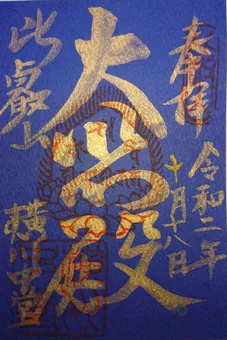 奉拝
令和二年
十月十八日
大師殿
比叡山
横川中堂